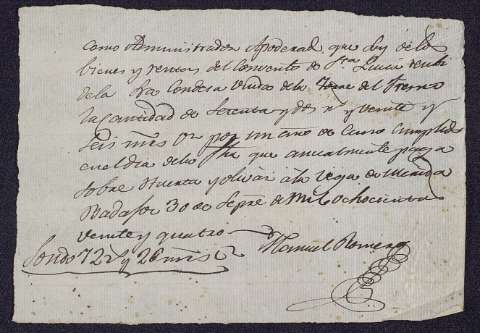 como Administrador Apoderado que soy de los
bienes y rentas del convento de Sta Lucia recibi
de la Exa Condesa viuda de la Torre del Fresno
la cantidad de setenta y dos rs y veinte y
seis mrs vn por un año de censo cumplido
en el dia de la fha que anualmente paga
sobre Huerta y olivar a la vega de Merida
Badajoz 30 de Sepre de mil ochocientos
veinte y quatro
Son 72 rs y 26 mrs
Manuel Romero